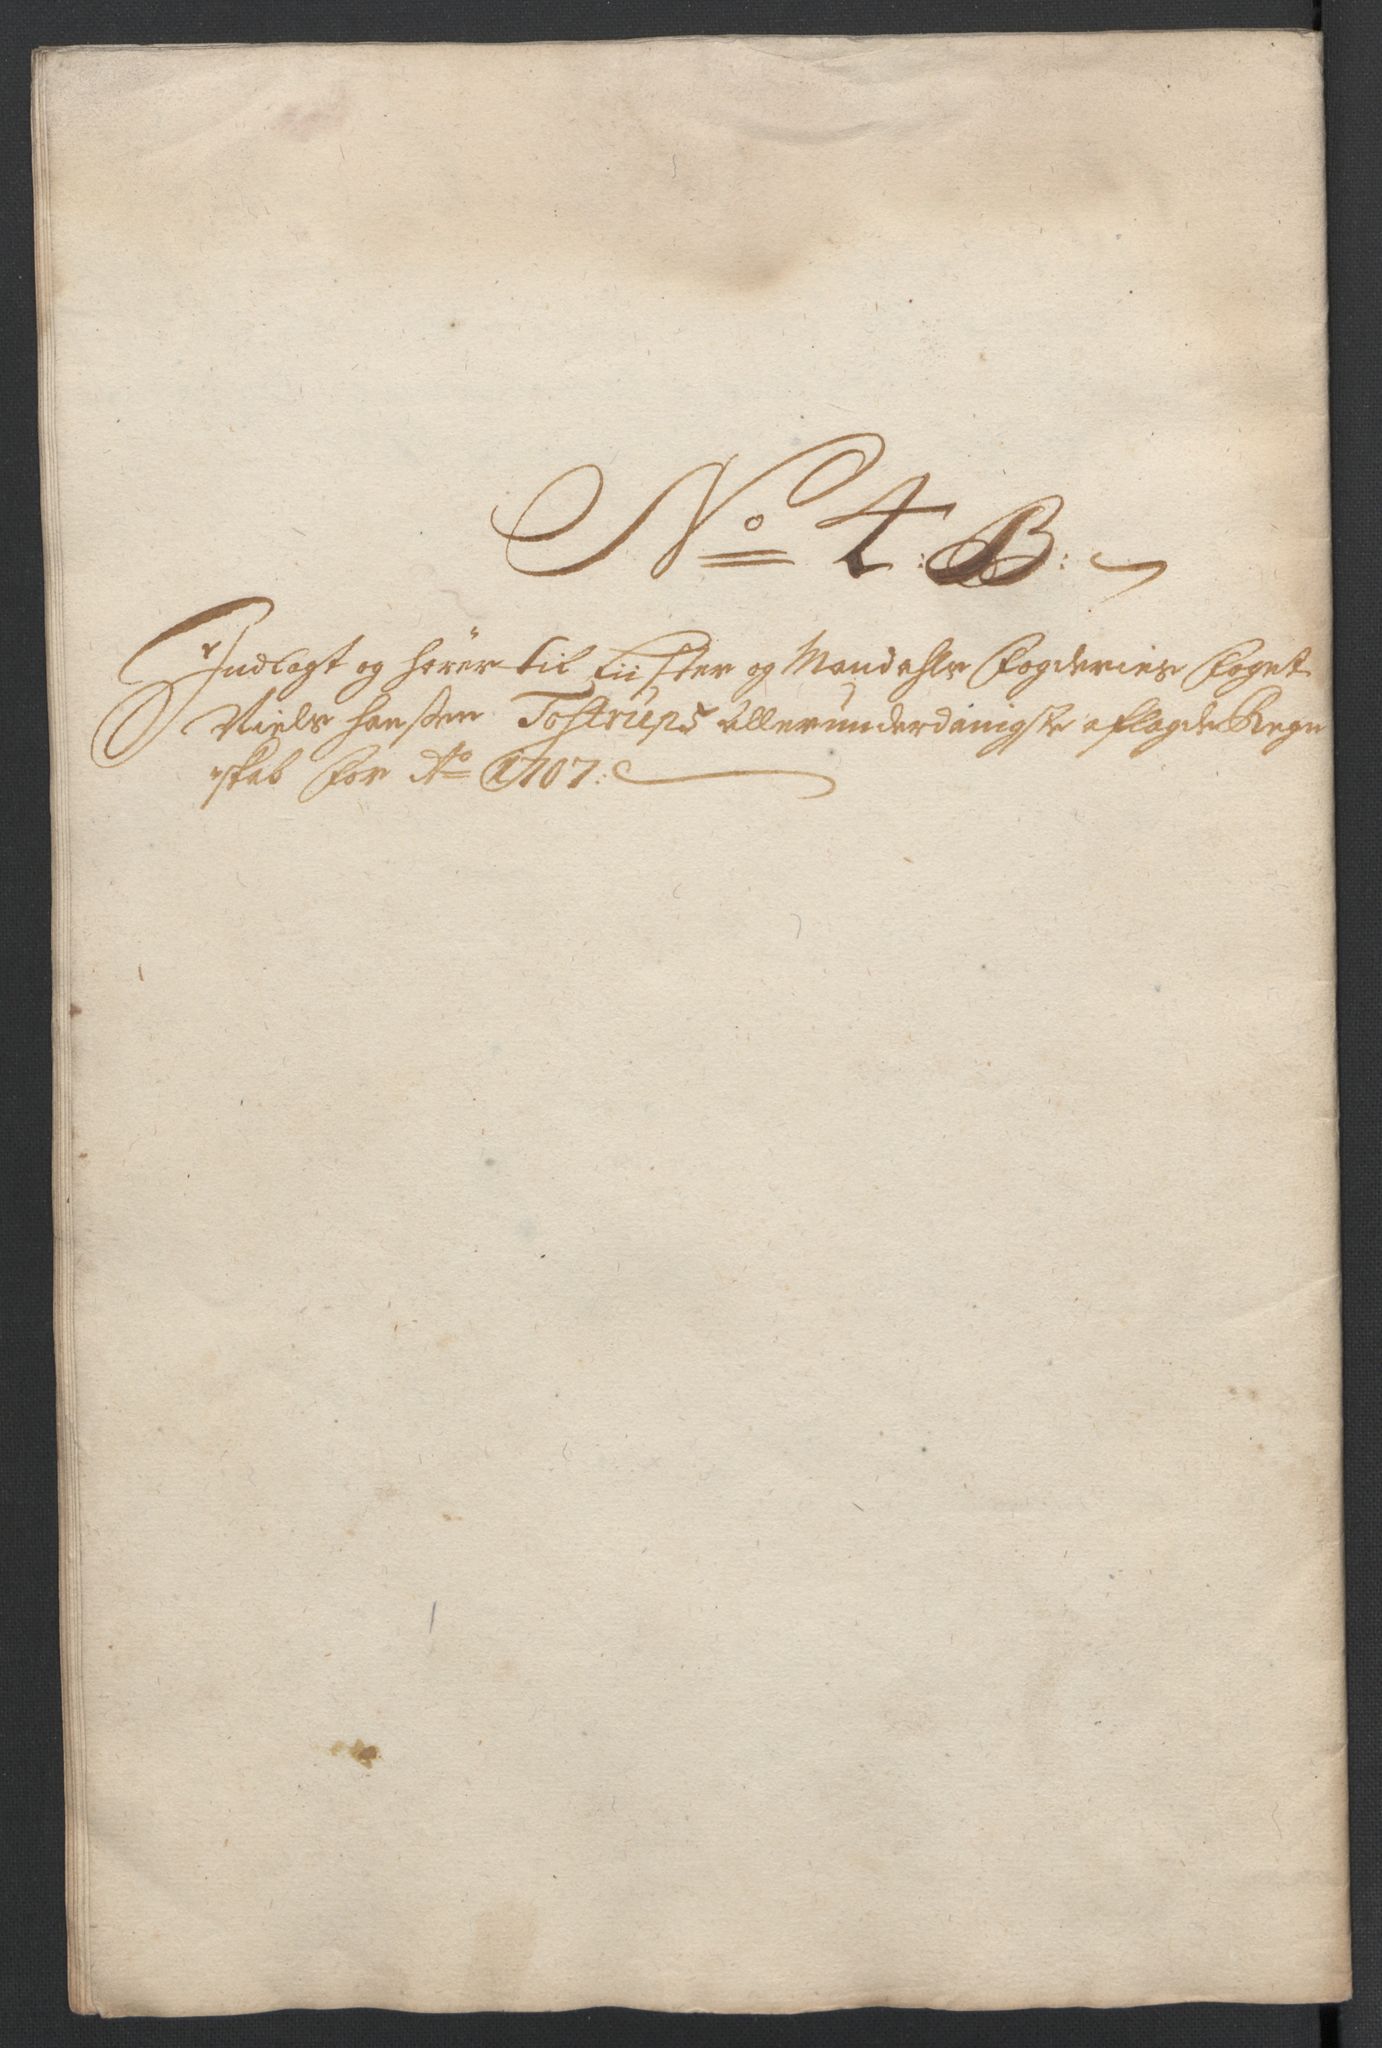 No 4: B:
Indlagt og hører til Liister og Mandahls Fogderies Foget
Niels Hanßen Tostrups Allerunderdanigste aflagde Regn
skab for Ao 1707: